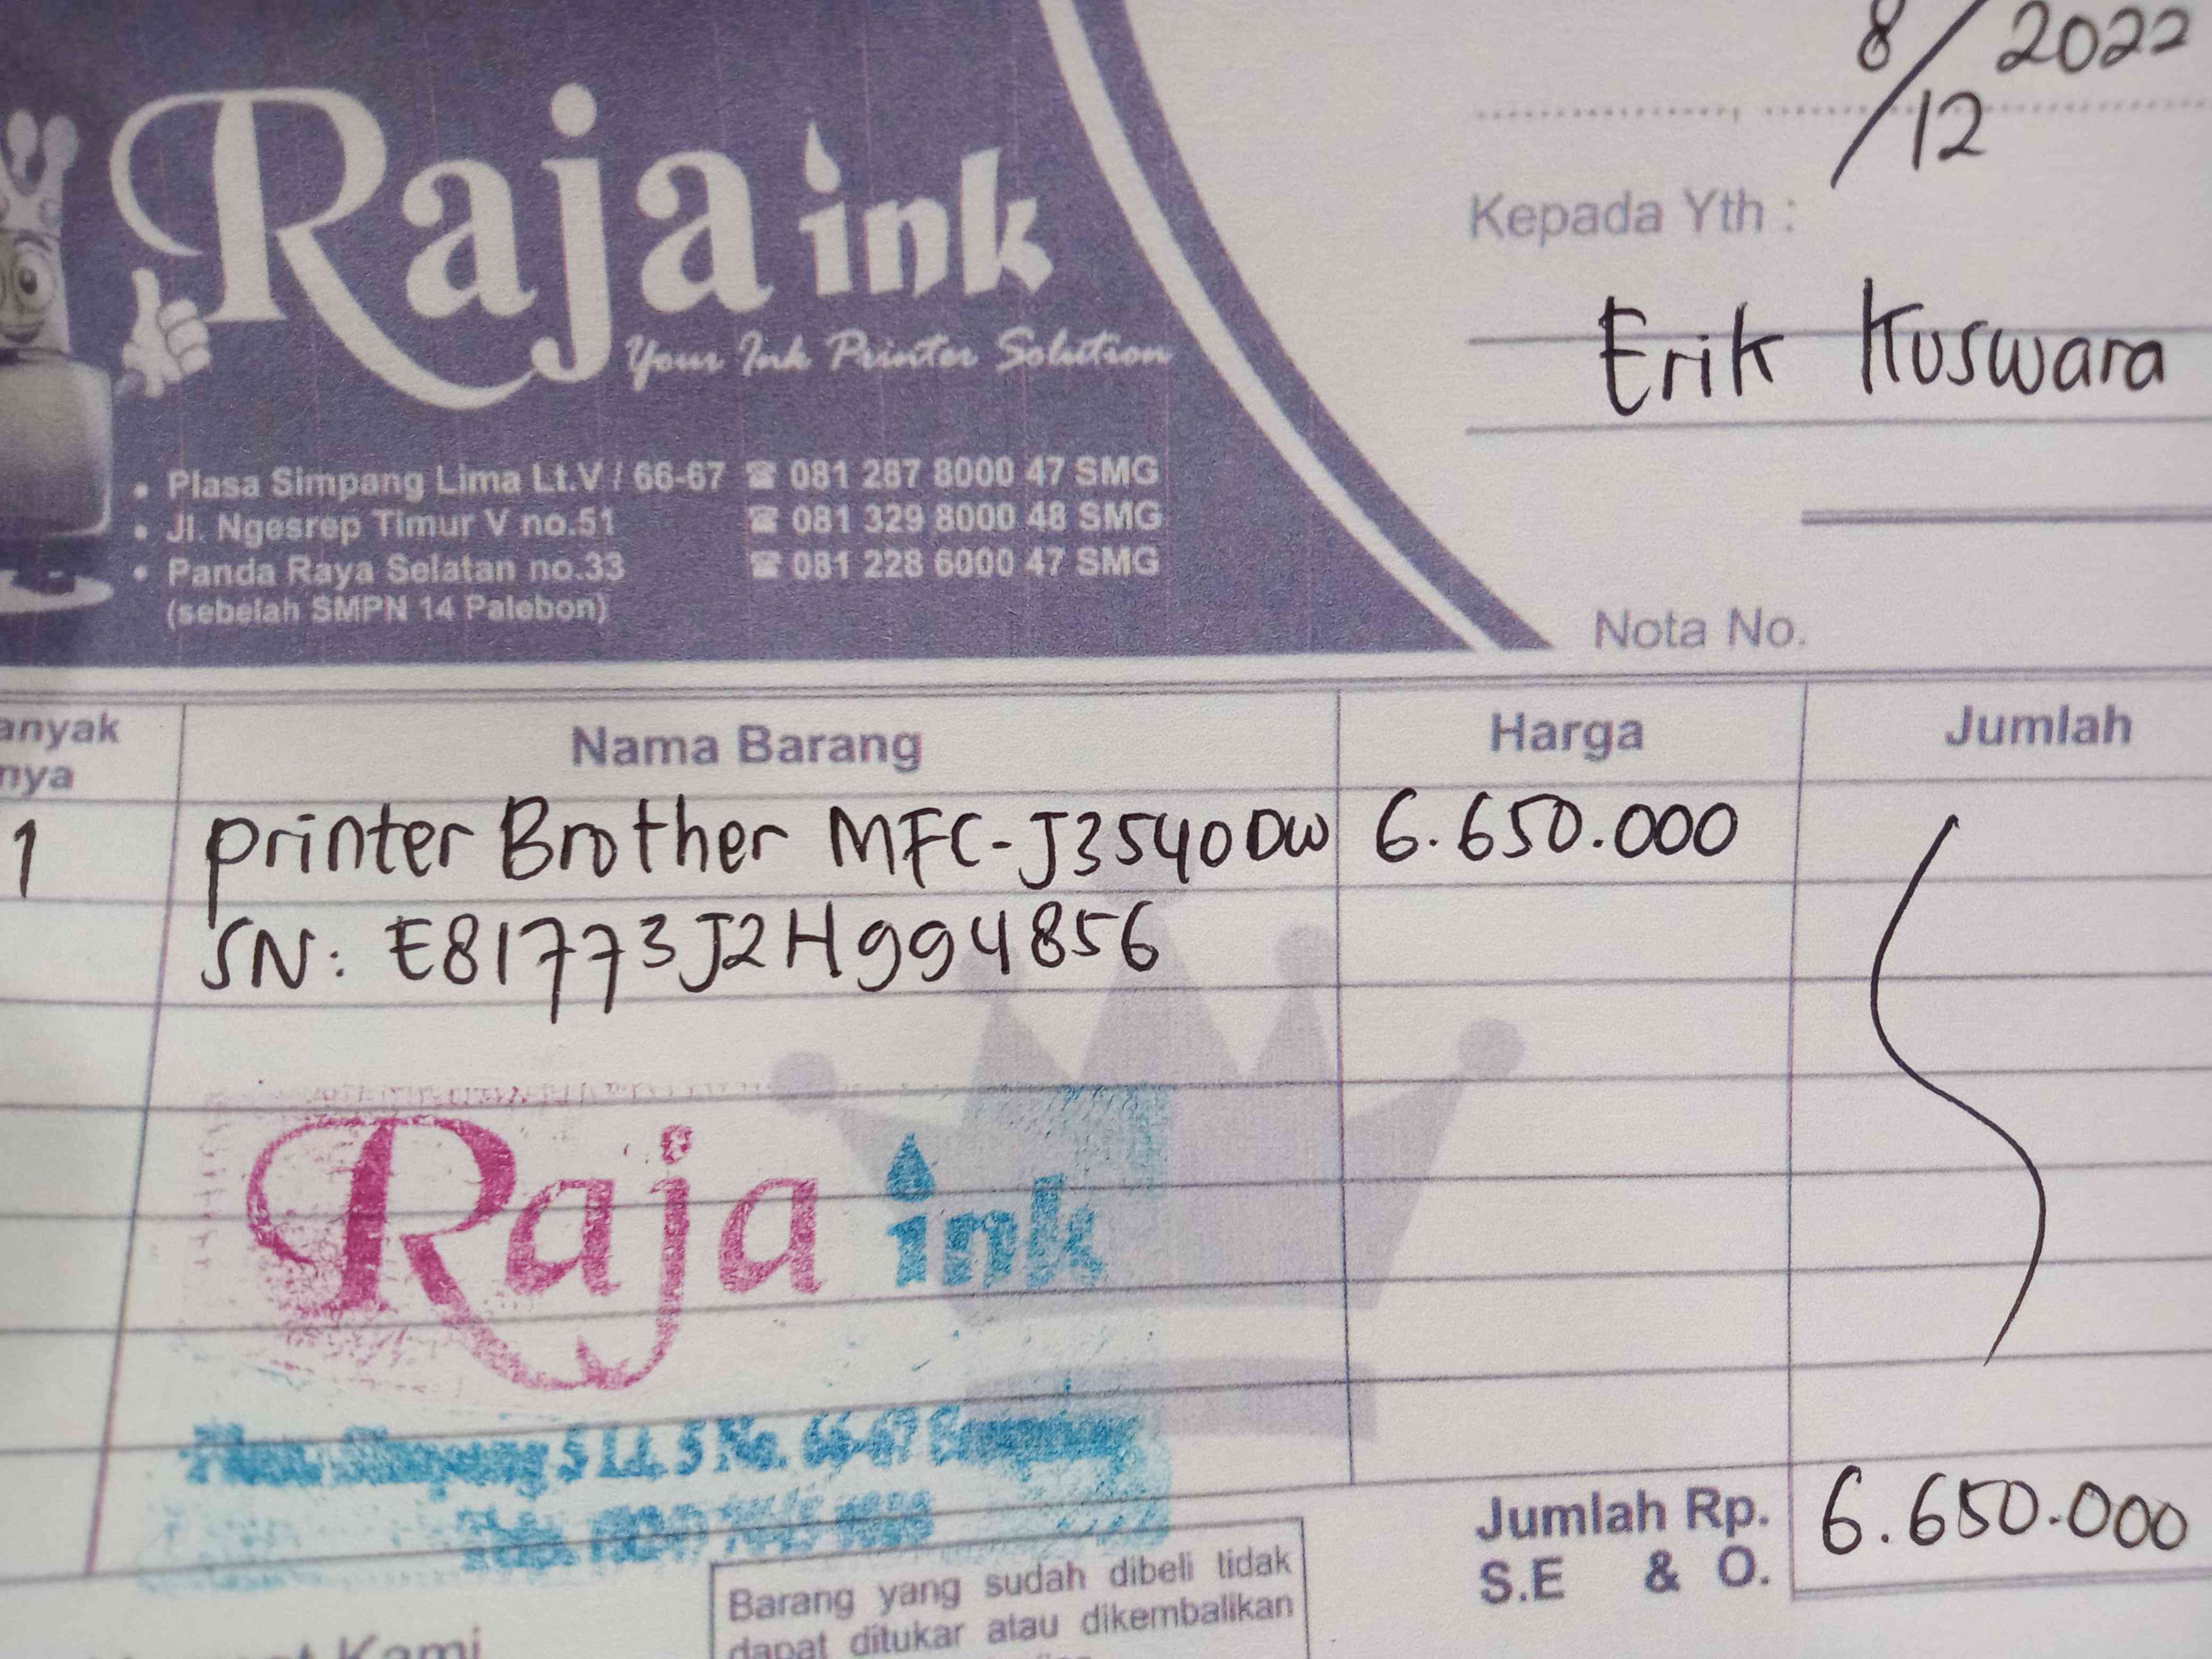 8/12 2022
Raja ink
Your Ink Printer Solution
Kepada Yth :
Erik Kuswara
• Plasa Simpang Lima Lt.V / 66-67 ☎ 081 287 8000 47 SMG
• Jl. Ngesrep Timur V no.51 ☎ 081 329 8000 48 SMG
• Panda Raya Selatan no.33 ☎ 081 228 6000 47 SMG
(sebelah SMPN 14 Palebon)
Nota No.
anyak
nya
Nama Barang
Harga
Jumlah
1 printer Brother MFC-J3540DW 6.650.000
SN: E81773J2H994856
Raja ink
5 Lt. 5 No. 66-67
Jumlah Rp. 6.650.000
S.E & O.
Barang yang sudah dibeli tidak
dapat ditukar atau dikembalikan
Kami